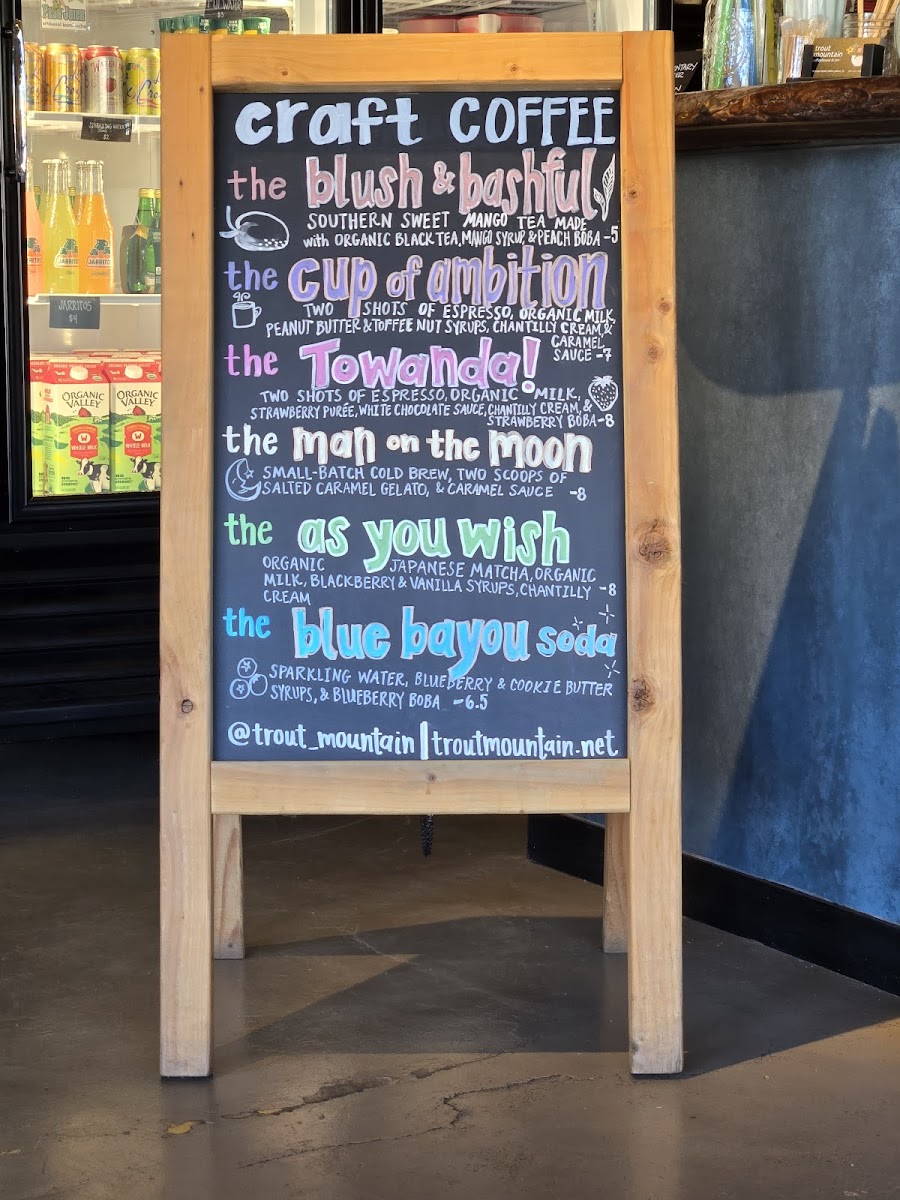 craft COFFEE
the blush & bashful
SOUTHERN SWEET MANGO TEA MADE
with ORGANIC BLACK TEA, MANGO SYRUP, & PEACH BOBA -5
the cup of ambition
TWO SHOTS OF ESPRESSO, ORGANIC MILK,
PEANUT BUTTER & TOFFEE NUT SYRUPS, CHANTILLY CREAM, &
CARAMEL
SAUCE -7
the Towanda!
TWO SHOTS OF ESPRESSO, ORGANIC MILK,
STRAWBERRY PURÉE, WHITE CHOCOLATE SAUCE, CHANTILLY CREAM, &
STRAWBERRY BOBA -8
the man on the moon
SMALL-BATCH COLD BREW, TWO SCOOPS OF
SALTED CARAMEL GELATO, & CARAMEL SAUCE -8
the as you wish
ORGANIC JAPANESE MATCHA, ORGANIC
MILK, BLACKBERRY & VANILLA SYRUPS, CHANTILLY -8
CREAM
the blue bayou soda
SPARKLING WATER, BLUEBERRY & COOKIE BUTTER
SYRUPS, & BLUEBERRY BOBA -6.5
@trout_mountain | troutmountain.net
JARRITOS
$4
ORGANIC VALLEY
WHOLE MILK
ORGANIC VALLEY
WHOLE MILK
trout
mountain